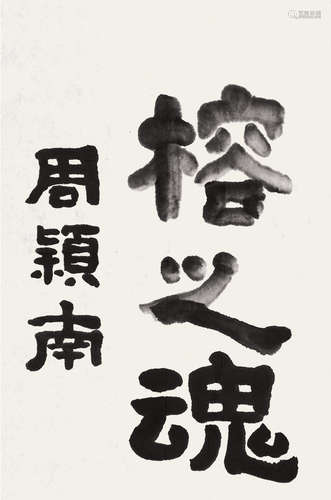 榕之魂
周颖南